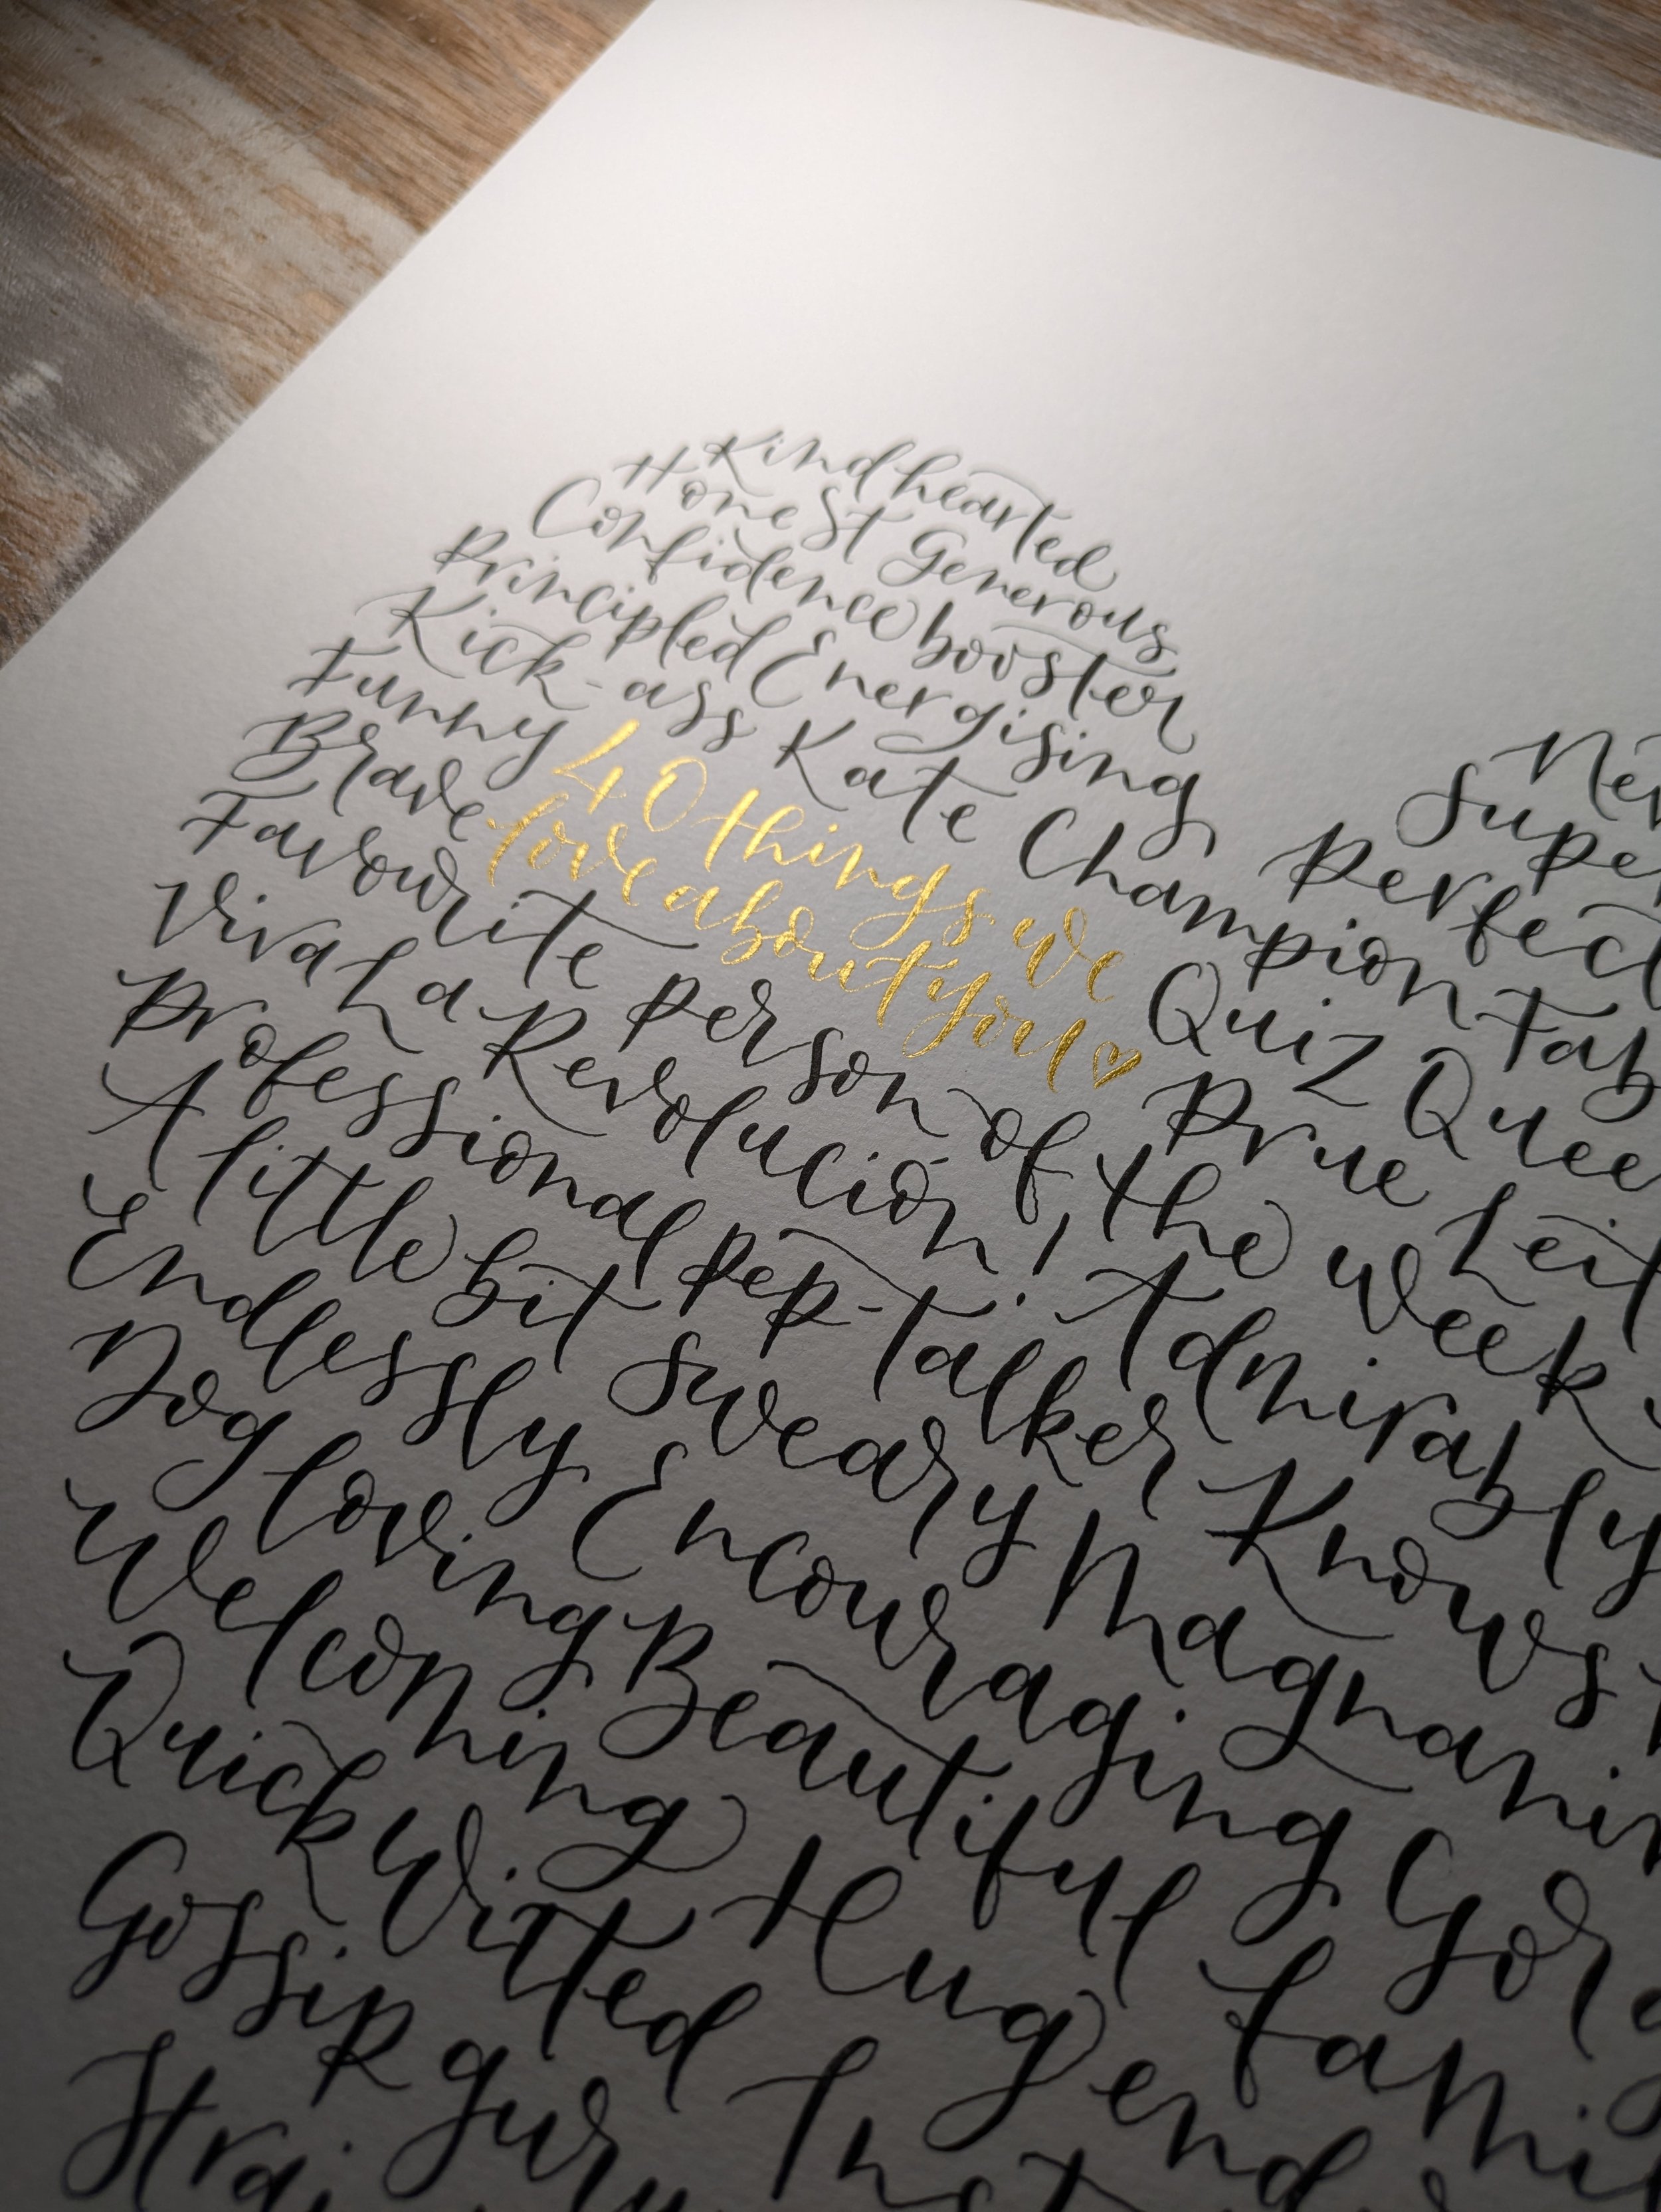 Kindhearted
Honest Generous
Confidence booster Nev
Principled Energising Super
Perfect
Kick-ass Kate Champion Fab
Funny 40 things we Quiz Quee
Brave love about you♡ Prue Leit
Favourite person of the week
Viva La Revolución! Admirably
Professional pep-talker Knows
A little bit sweary Magnanim
Endlessly Encouraging Gor
Dog loving Beautiful fami
Welcoming Hug end
Quick Witted Inst
Gossip guru
Strai